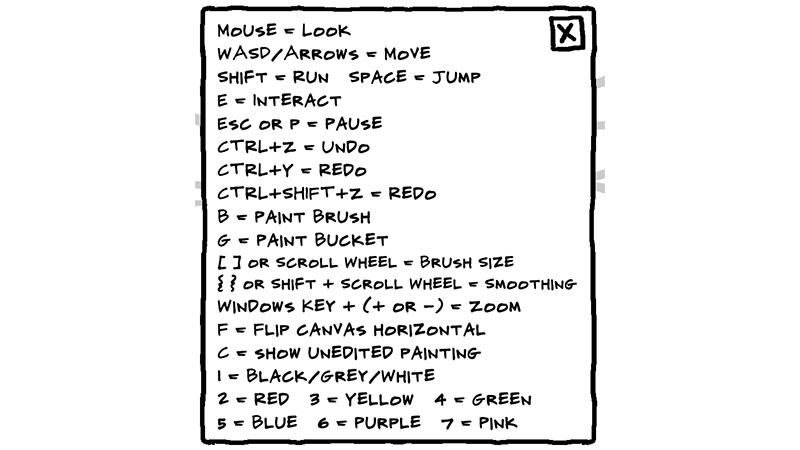 MOUSE = LOOK
WASD/ARROWS = MOVE
SHIFT = RUN SPACE = JUMP
E = INTERACT
ESC OR P = PAUSE
CTRL+Z = UNDO
CTRL+Y = REDO
CTRL+SHIFT+Z = REDO
B = PAINT BRUSH
G = PAINT BUCKET
[ ] OR SCROLL WHEEL = BRUSH SIZE
{ } OR SHIFT + SCROLL WHEEL = SMOOTHING
WINDOWS KEY + (+ OR -) = ZOOM
F = FLIP CANVAS HORIZONTAL
C = SHOW UNEDITED PAINTING
1 = BLACK/GREY/WHITE
2 = RED 3 = YELLOW 4 = GREEN
5 = BLUE 6 = PURPLE 7 = PINK
X